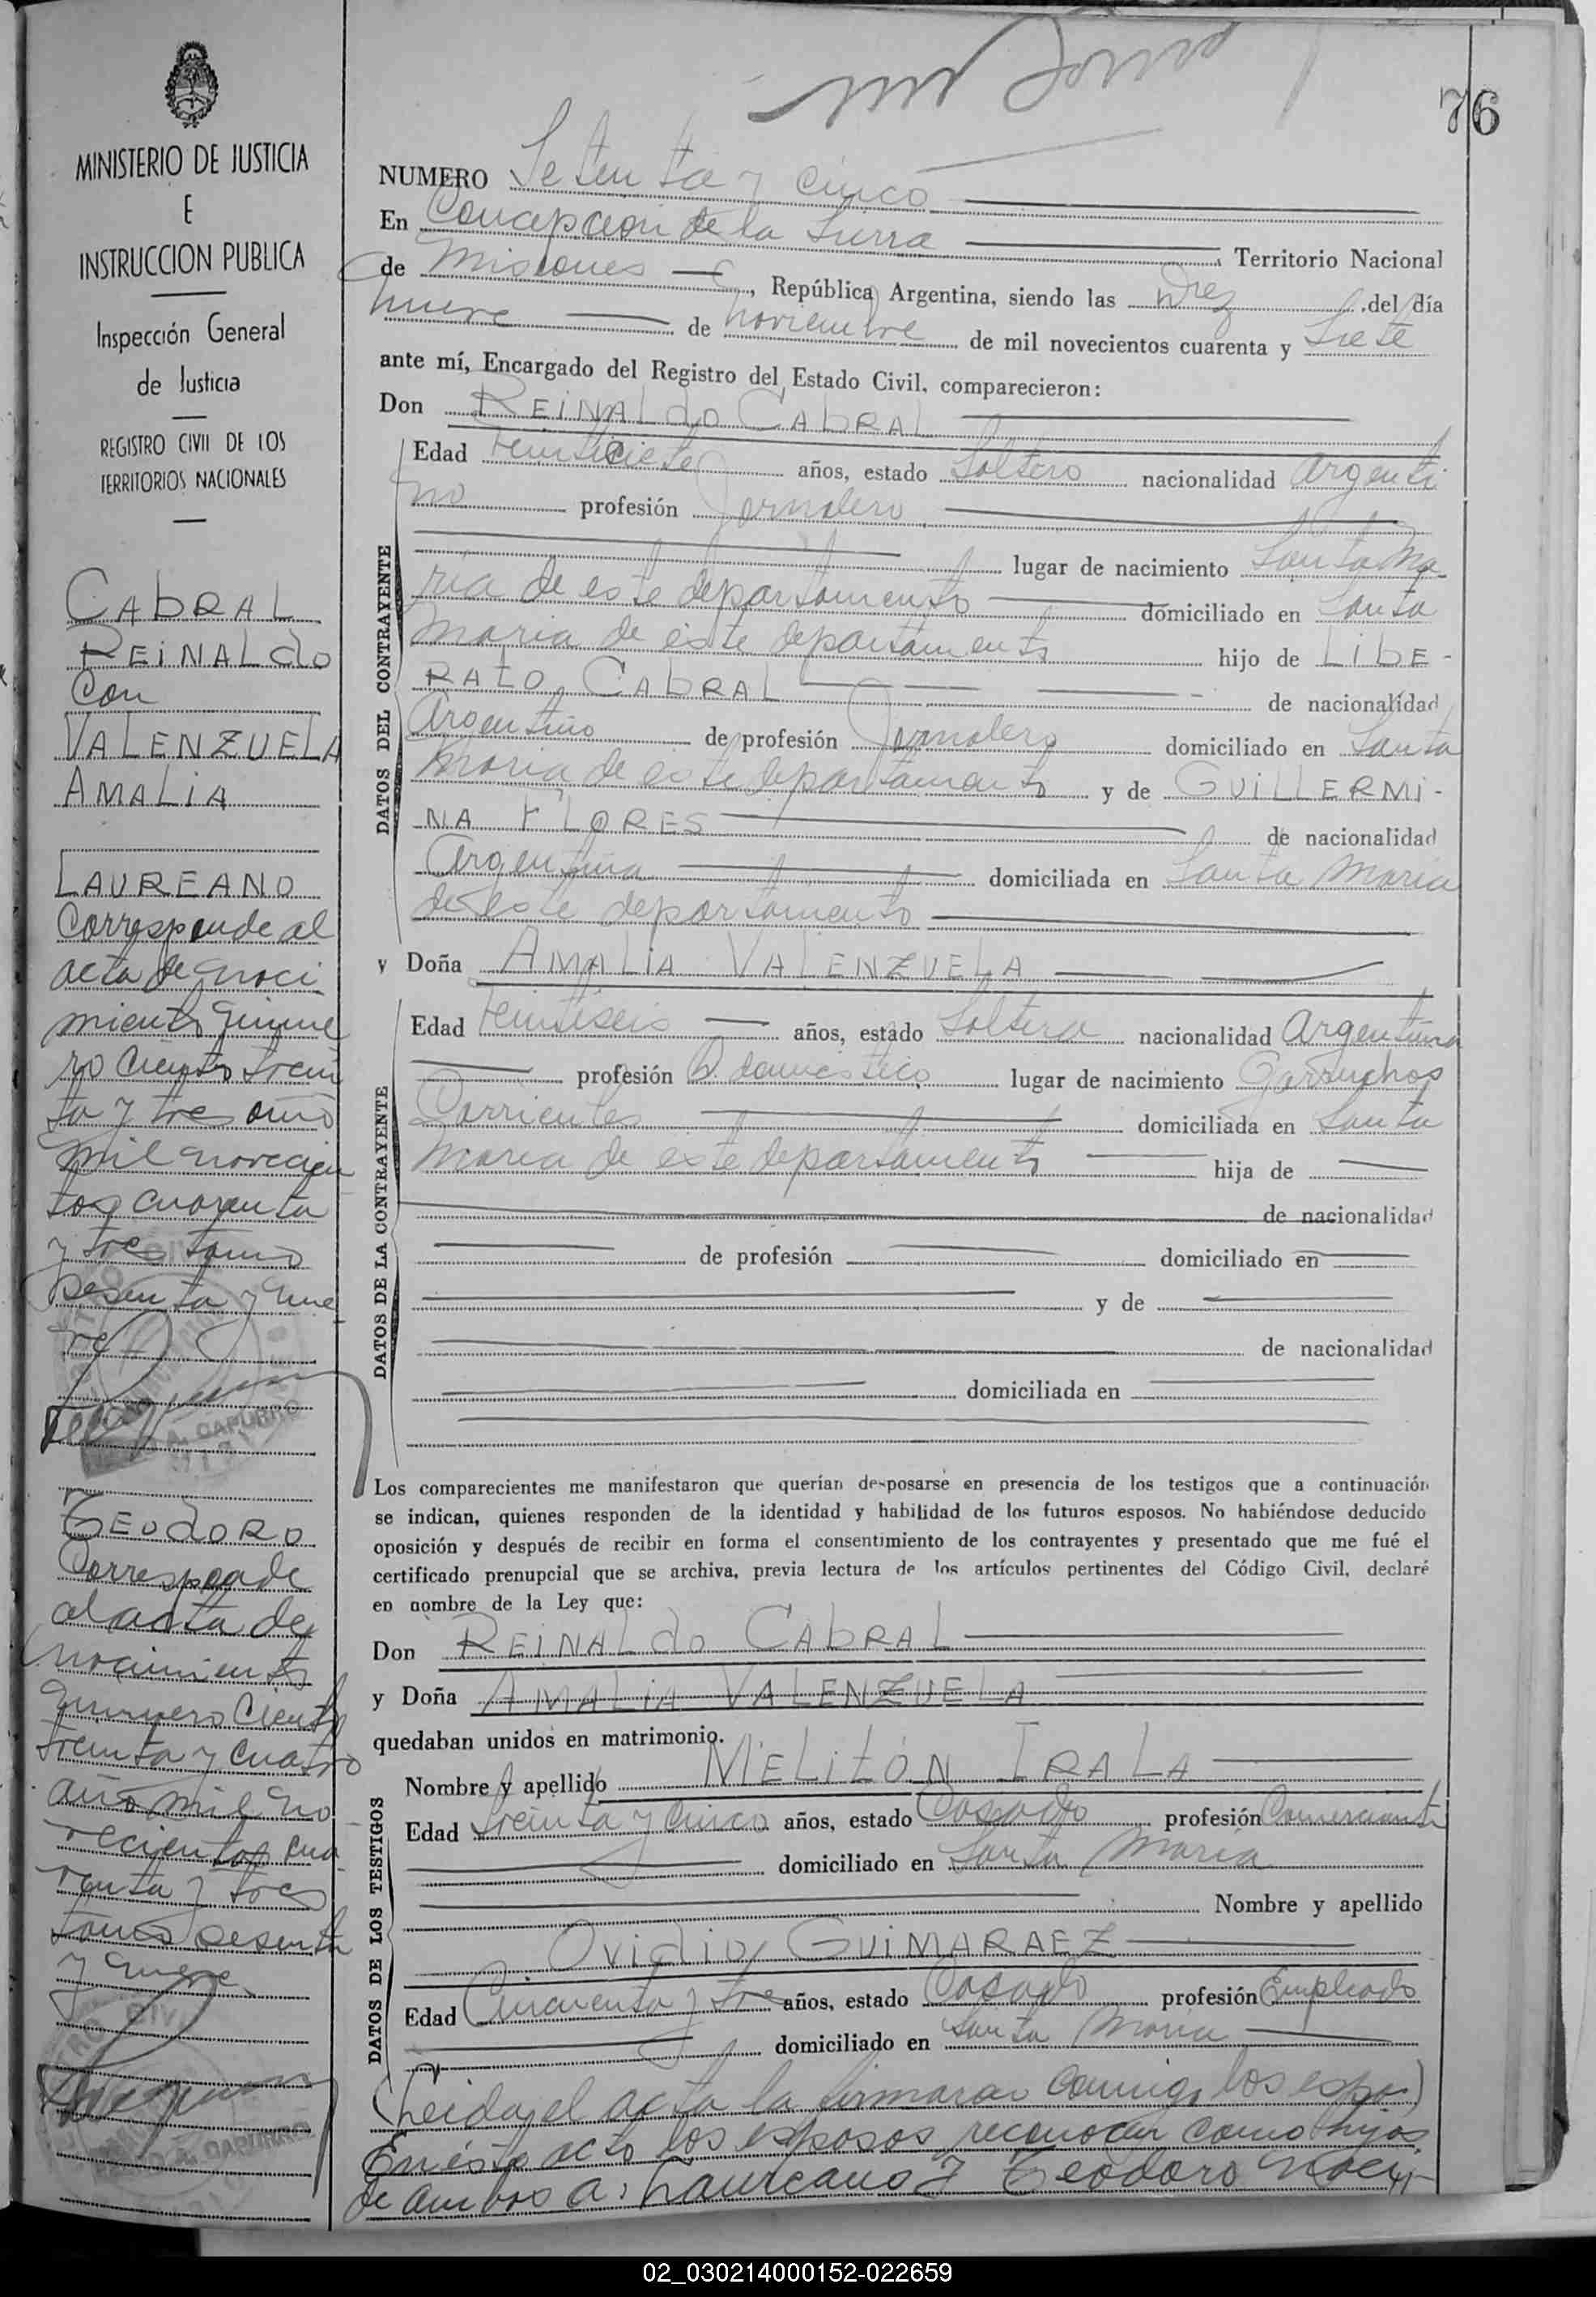 76
MINISTERIO DE JUSTICIA
E
INSTRUCCION PUBLICA
Inspección General
de Justicia
REGISTRO CIVIL DE LOS
TERRITORIOS NACIONALES
CABRAL
REINALDO
con
VALENZUELA
AMALIA
LAUREANO
Corresponde al
acta de naci
miento núme
ro ciento trein
ta y tres año
mil novecien
tos cuarenta
y tres tomo
sesenta y nue
ve
TEODORO
Corresponde
al acta de
nacimiento
número ciento
treinta y cuatro
año mil no
vecientos cua
renta y tres
tomo sesenta
y nueve
NUMERO Setenta y cinco
En Concepción de la Sierra Territorio Nacional
de Misiones, República Argentina, siendo las diez del día
nueve de noviembre de mil novecientos cuarenta y siete
ante mí, Encargado del Registro del Estado Civil, comparecieron:
Don REINALDO CABRAL
DATOS DEL CONTRAYENTE
Edad veintisiete años, estado soltero nacionalidad Argenti
no profesión Jornalero
lugar de nacimiento Santa Ma
ría de este departamento domiciliado en Santa
María de este departamento hijo de LIBE-
RATO CABRAL de nacionalidad
Argentino de profesión Jornalero domiciliado en Santa
María de este departamento y de GUILLERMI-
NA FLORES de nacionalidad
Argentina domiciliada en Santa María
de este departamento
y Doña AMALIA VALENZUELA
DATOS DE LA CONTRAYENTE
Edad veintiseis años, estado soltera nacionalidad Argentina
profesión Q. domestico lugar de nacimiento Garruchos
Corrientes domiciliada en Santa
María de este departamento hija de
de nacionalidad
de profesión domiciliado en
y de
de nacionalidad
domiciliada en
Los comparecientes me manifestaron que querían desposarse en presencia de los testigos que a continuación
se indican, quienes responden de la identidad y habilidad de los futuros esposos. No habiéndose deducido
oposición y después de recibir en forma el consentimiento de los contrayentes y presentado que me fué el
certificado prenupcial que se archiva, previa lectura de los artículos pertinentes del Código Civil, declaré
en nombre de la Ley que:
Don REINALDO CABRAL
y Doña AMALIA VALENZUELA
quedaban unidos en matrimonio.
DATOS DE LOS TESTIGOS
Nombre y apellido MELITÓN IRALA
Edad treinta y cinco años, estado Casado profesión Comerciante
domiciliado en Santa María
Nombre y apellido
OVIDIO GUIMARAEZ
Edad Cincuenta y tres años, estado Casado profesión Empleado
domiciliado en Santa María
(Leida el acta la firmaran conmigo los espo)
En este acto los esposos reconocen como hijos
de ambos a: Laureano y Teodoro naci
02_030214000152-022659